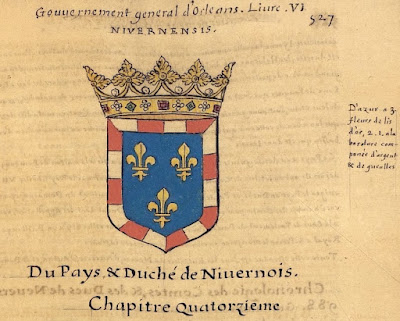 Gouvernement general d'Orleans. Liure. VI
527
NIVERNENSIS.
D'azur a 3.
fleurs de lis
d'or, 2. 1. a la
bordure com-
ponée d'argent
& de gueulles
Du Pays & Duché de Nivernois.
Chapitre Quatorziéme